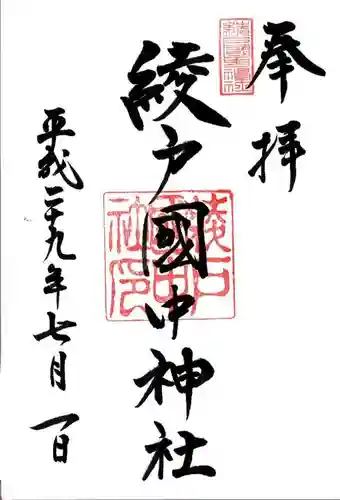 奉拝
綾戸國中神社
平成二十九年七月一日
綾戸國中神社印